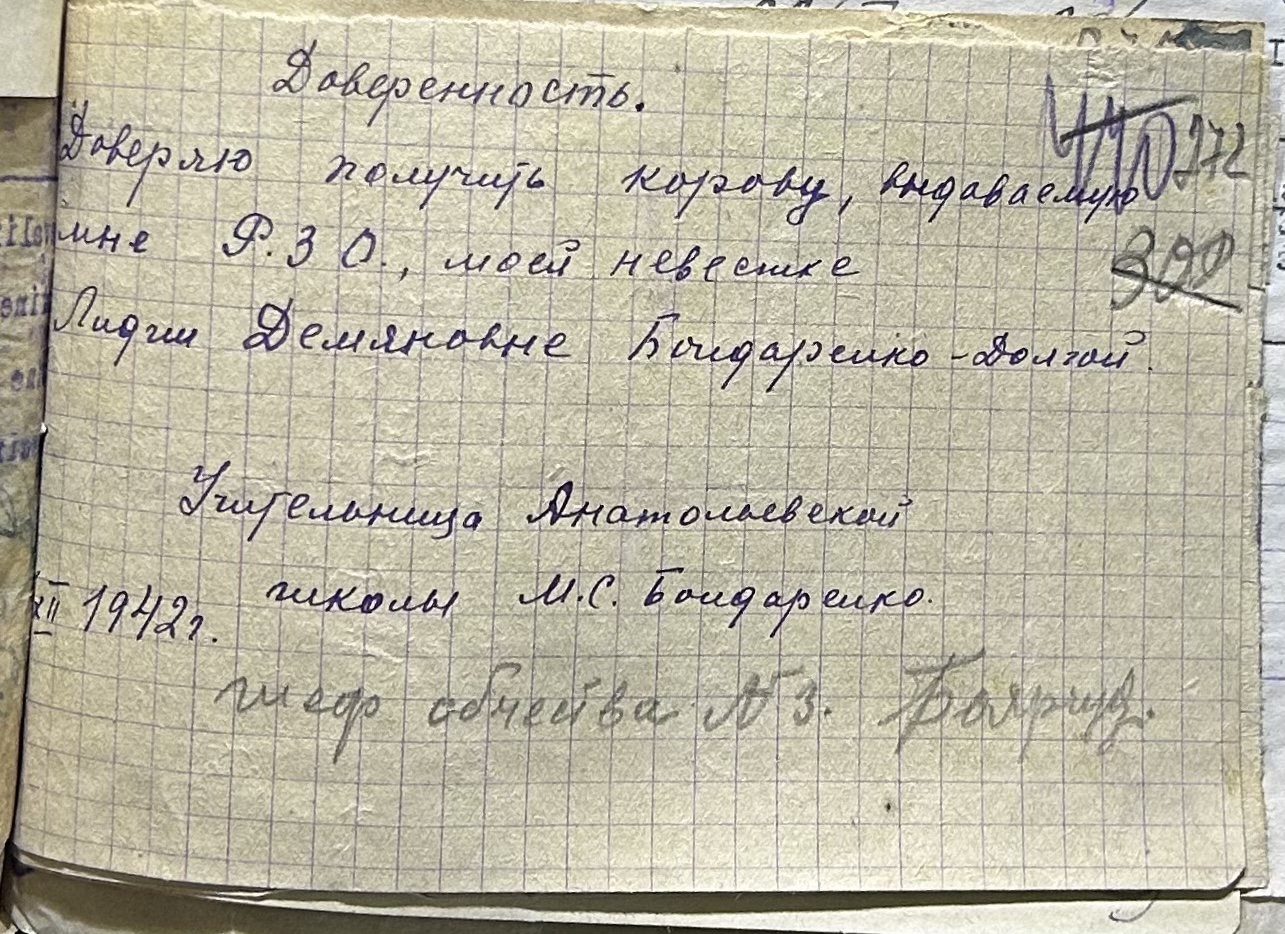 Доверенность.
410 272
Доверяю получить корову, выдаваемую
мне Р.З О., моей невестке
300
Лидии Демяновне Бондаренко-Долгой.
Учительница Анатольевской
школы М.С. Бондаренко.
XII 1942 г.
шеф обчества №3.